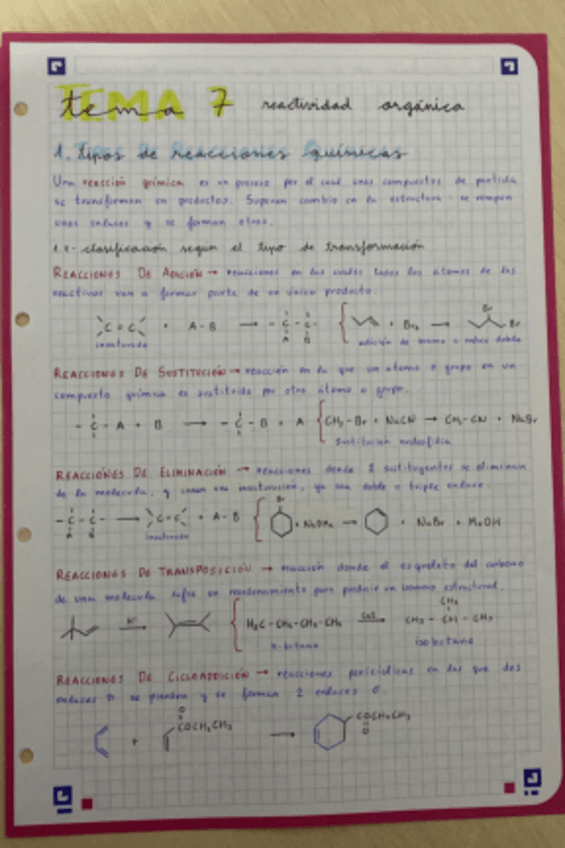 tema 7 reactividad orgánica
1. Tipos de Reacciones Químicas
Una reacción química es un proceso por el cual unos compuestos de partida
se transforman en productos. Suponen cambio en la estructura: se rompen
unos enlaces y se forman otros.
1.1- clasificación según el tipo de transformación
REACCIONES DE ADICIÓN → reacciones en las cuales todos los átomos de los
reactivos van a formar parte de un único producto.
C=C + A-B → -C-C- + Br₂ → Br Br
A B
insaturado adición de bromo a enlace doble
REACCIONES DE SUSTITUCIÓN → reacción en la que un átomo o grupo en un
compuesto químico es sustituido por otro átomo o grupo.
-C-A + B → -C-B + A CH₃-Br + NaCN → CH₃-CN + NaBr
sustitución nucleofílica
REACCIONES DE ELIMINACIÓN → reacciones donde 2 sustituyentes se eliminan
de la molécula, y crean una insaturación, ya sea doble o triple enlace.
-C-C- → C=C + A-B Br + NaOMe → + NaBr + MeOH
A B
insaturado
REACCIONES DE TRANSPOSICIÓN → reacción donde el esqueleto del carbono
de una molécula sufre un reordenamiento para producir un isómero estructural.
H⁺ H₃C-CH₂-CH₂-CH₃ Cat CH₃-CH-CH₃
CH₃
n-butano isobutano
REACCIONES DE CICLOADICIÓN → reacciones pericíclicas en las que dos
enlaces π se pierden y se forman 2 enlaces σ.
+ COCH₂CH₃ → COCH₂CH₃
O O